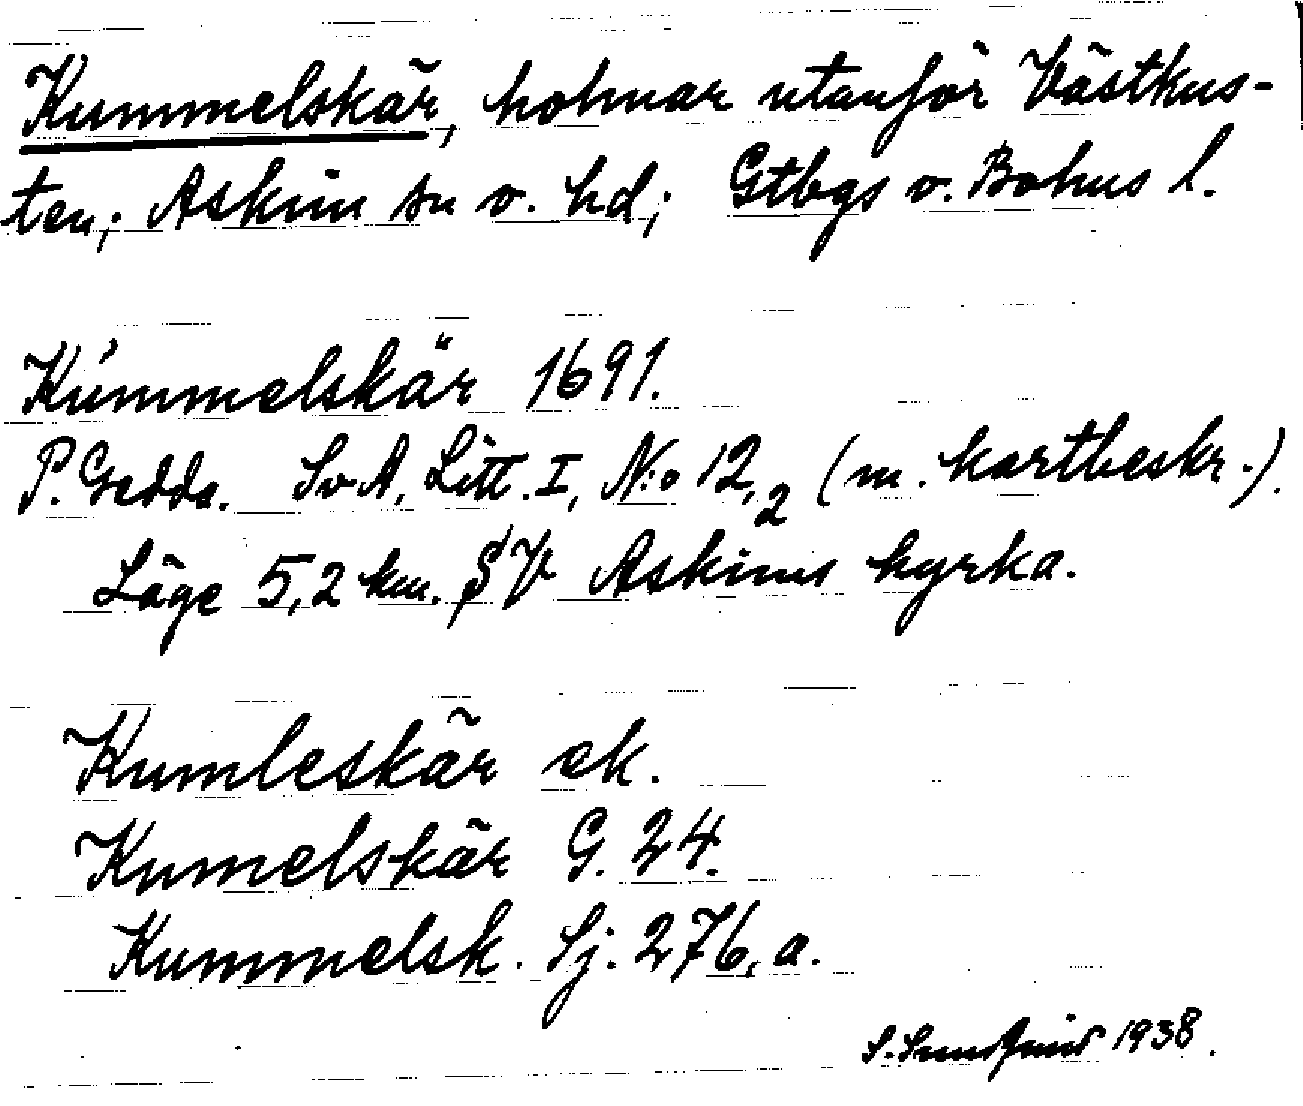 Kummelskär, holmar utanför Västkus-
ten; Askim sn o. hd; Gtbgs o. Bohus l.
Kummelskär 1691.
P. Gedda. Sv A, Litt. I, N:o 12,2 (m. kartbeskr.).
Läge 5,2 km. SV Askims kyrka.
Kumleskär ek.
Kumelskär G. 24.
Kummelsk. Sj. 276, a.
S. 1938.